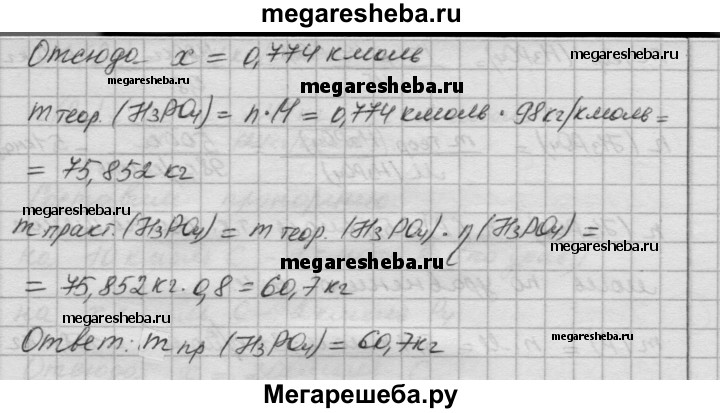 megaresheba.ru
Отсюда x = 0,774 кмоль
megaresheba.ru
megaresheba.ru
megaresheba.ru
m теор. (H₃PO₄) = n · M = 0,774 кмоль · 98кг/кмоль =
= 75,852 кг
megaresheba.ru
m практ. (H₃PO₄) = m теор. (H₃PO₄) · η (H₃PO₄) =
megaresheba.ru
megaresheba.ru
= 75,852 кг · 0,8 = 60,7 кг
megaresheba.ru
Ответ: m пр (H₃PO₄) = 60,7 кг
megaresheba.ru
Мегарешеба.ру